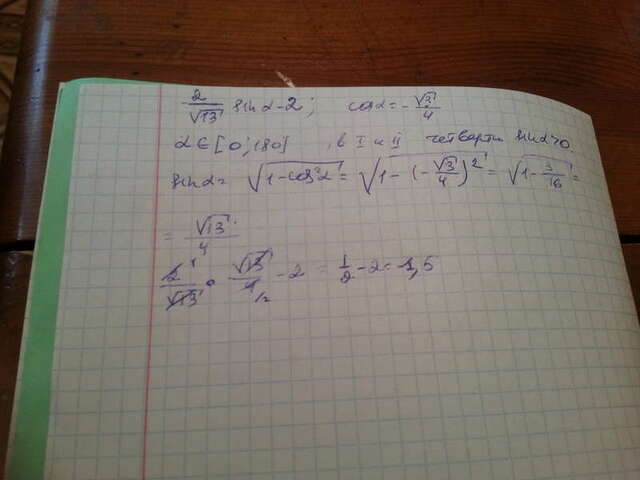 2/√13 sin α - 2; cos α = - √3/4
α ∈ [0; 180], в I и II четверти sin α > 0
sin α = √(1 - cos² α) = √(1 - (-√3/4)²) = √(1 - 3/16) =
= √13/4
2/√13 · √13/4 - 2 = 1/2 - 2 = -1,5